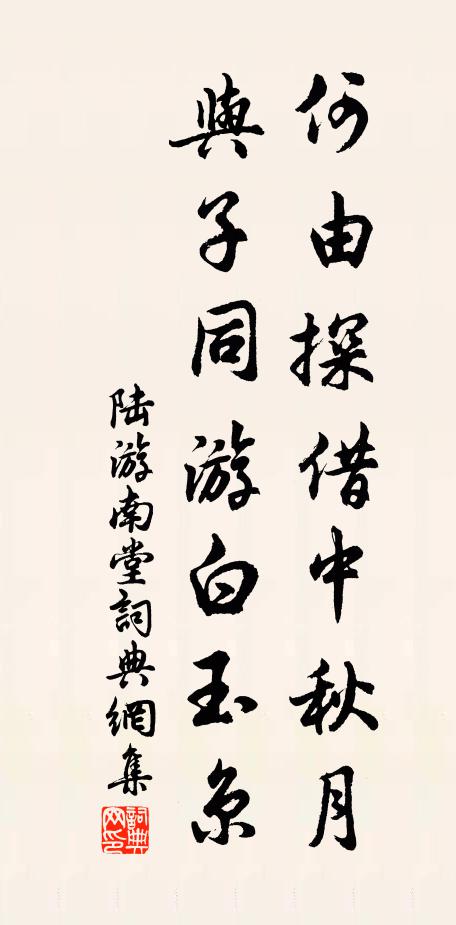 何由探借中秋月
與子同游白玉京
陸游南堂詞典網集
詞典网印